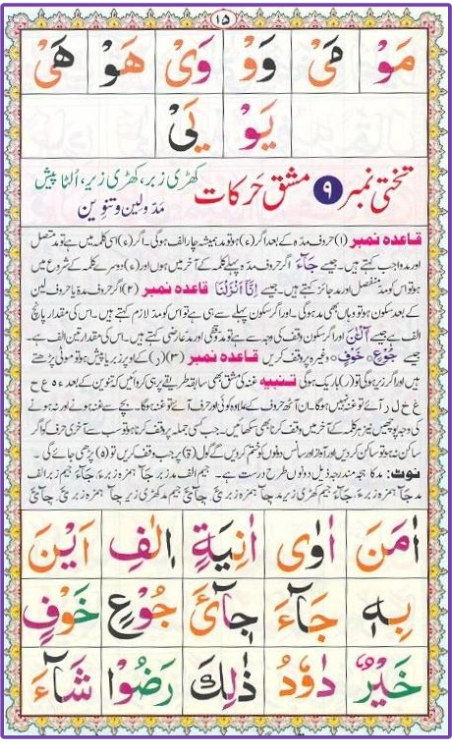 ۱۵
مَوْ مَیْ وَوْ وَیْ هَوْ هَیْ
یَوْ یَیْ
تختی نمبر ۹ مشق حَرکات کھڑی زبر، کھڑی زیر، اُلٹا پیش
مدّ ولین و تنوین
قاعدہ نمبر (۱) حروف مدّہ کے بعد اگر (ء) ہو تو مد ہمیشہ چار الف ہوگی۔ اگر (ء) اسی کلمہ میں ہے تو مد متصل
اور مد واجب کہتے ہیں۔ جیسے جَآءَ اگر حروف مدّہ پہلے کلمہ کے آخر میں ہوں اور (ء) دوسرے کلمہ کے شروع میں
ہو تو اس کو مد منفصل اور مد جائز کہتے ہیں۔ جیسے اِنَّآ اَنْزَلْنَا قاعدہ نمبر (۲) اگر حروف مدہ یا حروف لین
کے بعد سکون ہو تو وہاں بھی مد ہوگی۔ اگر سکون پہلے سے ہی ہے تو اس کو مد لازم کہتے ہیں۔ اس کی مقدار پانچ
الف ہے جیسے آٰلْـٰٔنَ اور اگر سکون وقف کی وجہ سے ہے تو مد وقفی اور مد عارضی کہتے ہیں۔ اس کی مقدار تین الف ہے۔
جیسے جُوْعٍ، خَوْفٍ وغیرہ پر وقف کریں قاعدہ نمبر (۳) (ر) کے اوپر زبر یا پیش ہو تو موٹی پڑھتے
ہیں اور اگر زیر ہو گی تو (ر) باریک ہو گی تنبیہ غنہ کی مشق بھی سابقہ طریقے پر ہی کرائیں کہ تنوین کے بعد ء ہ ع ح
غ خ ل ر آئے تو غنہ نہیں ہوگا۔ ان آٹھ حروف کے علاوہ کوئی اور حرف آئے تو غنہ ہوگا۔ بچے سے غنہ ہونے اور نہ ہونے
کی وجہ پوچھیں نیز ہر کلمہ کے آخر میں وقف کرنا بھی سکھائیں۔ جب کسی جملہ پر وقف کرنا ہو تو سب سے آخری حرف کو اگر
ساکن نہ ہو تو ساکن کر دیں اور آواز اور سانس دونوں کو ختم کر دیں گے گول (ۃ) پر جب وقف کریں تو (ہ) پڑھی جائے گی۔
نوٹ: مد کا ہجہ مندرجہ ذیل دونوں طرح درست ہے۔ جیم الف مد زبر جآ ہمزہ زبر ءَ، جَآءَ جیم زبر الف
اٰمَنَ اٰوٰی اٰنِیَةٍ اِلٰفِ اَیْنَ
بِهٖ جَآءَ جِایْٓءَ جُوْعٍ خَوْفٍ
خَیْرٌ دَاوٗدُ ذٰلِكَ رَضُوْا شَآءَ